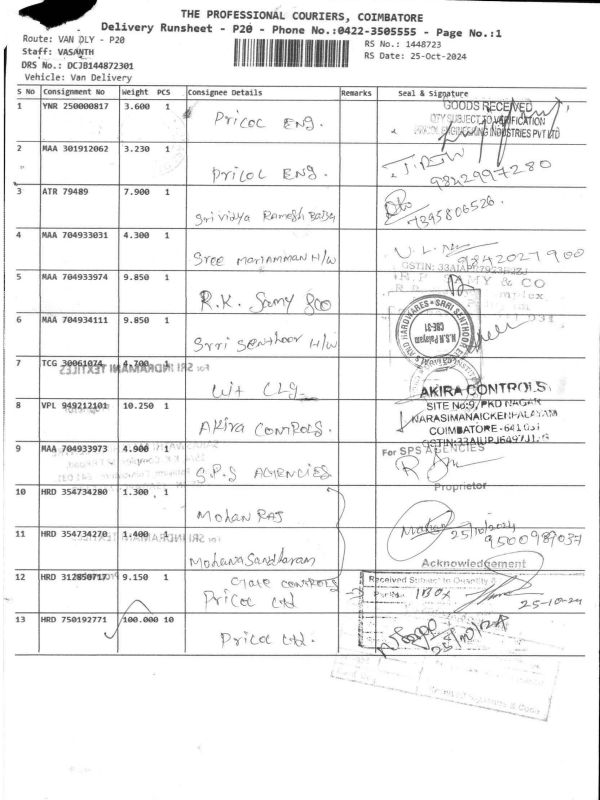 THE PROFESSIONAL COURIERS, COIMBATORE
Delivery Runsheet - P20 - Phone No.:0422-3505555 - Page No.:1
Route: VAN DLY - P20
RS No.: 1448723
Staff: VASANTH
RS Date: 25-Oct-2024
DRS No.: DCJB144872301
Vehicle: Van Delivery
S No Consignment No Weight PCS Consignee Details Remarks Seal & Signature
1 YNR 250000817 3.600 1 Pricol Eng.
GOODS RECEIVED
QTY SUBJECT TO VERIFICATION
PRICOL ENGINEERING INDUSTRIES PVT LTD
2 MAA 301912062 3.230 1 Pricol Eng.
9842997280
3 ATR 79489 7.900 1 Sri Vidya Ramesh
7395806526
4 MAA 704933031 4.300 1 Sree Mariamman H/W
9842027900
5 MAA 704933974 9.850 1 R.K. Samy &Co
6 MAA 704934111 9.850 1 Srri Senthoor H/W
7 TCG 30061074 4.700 1 Wit CLG
8 VPL 949212101 10.250 1 Akira CONTROLS.
AKIRA CONTROLS
SITE No:9, PKD NAGAR
NARASIMANAICKENPALAYAM
COIMBATORE - 641 031
9 MAA 704933973 4.900 1 S.P.S AGENCIES
For SPS AGENCIES
Proprietor
10 HRD 354734280 1.300 1 Mohan Raj
11 HRD 354734270 1.400 1 Mohana Sandharam
Mohan 25/10/2024
9500989037
Acknowledgement
12 HRD 312850717 9.150 1 CONTROLS
Pricol Ltd
Received Subject to Quantity &
1 BOX
25-10-24
13 HRD 750192771 100.000 10 Pricol Ltd.